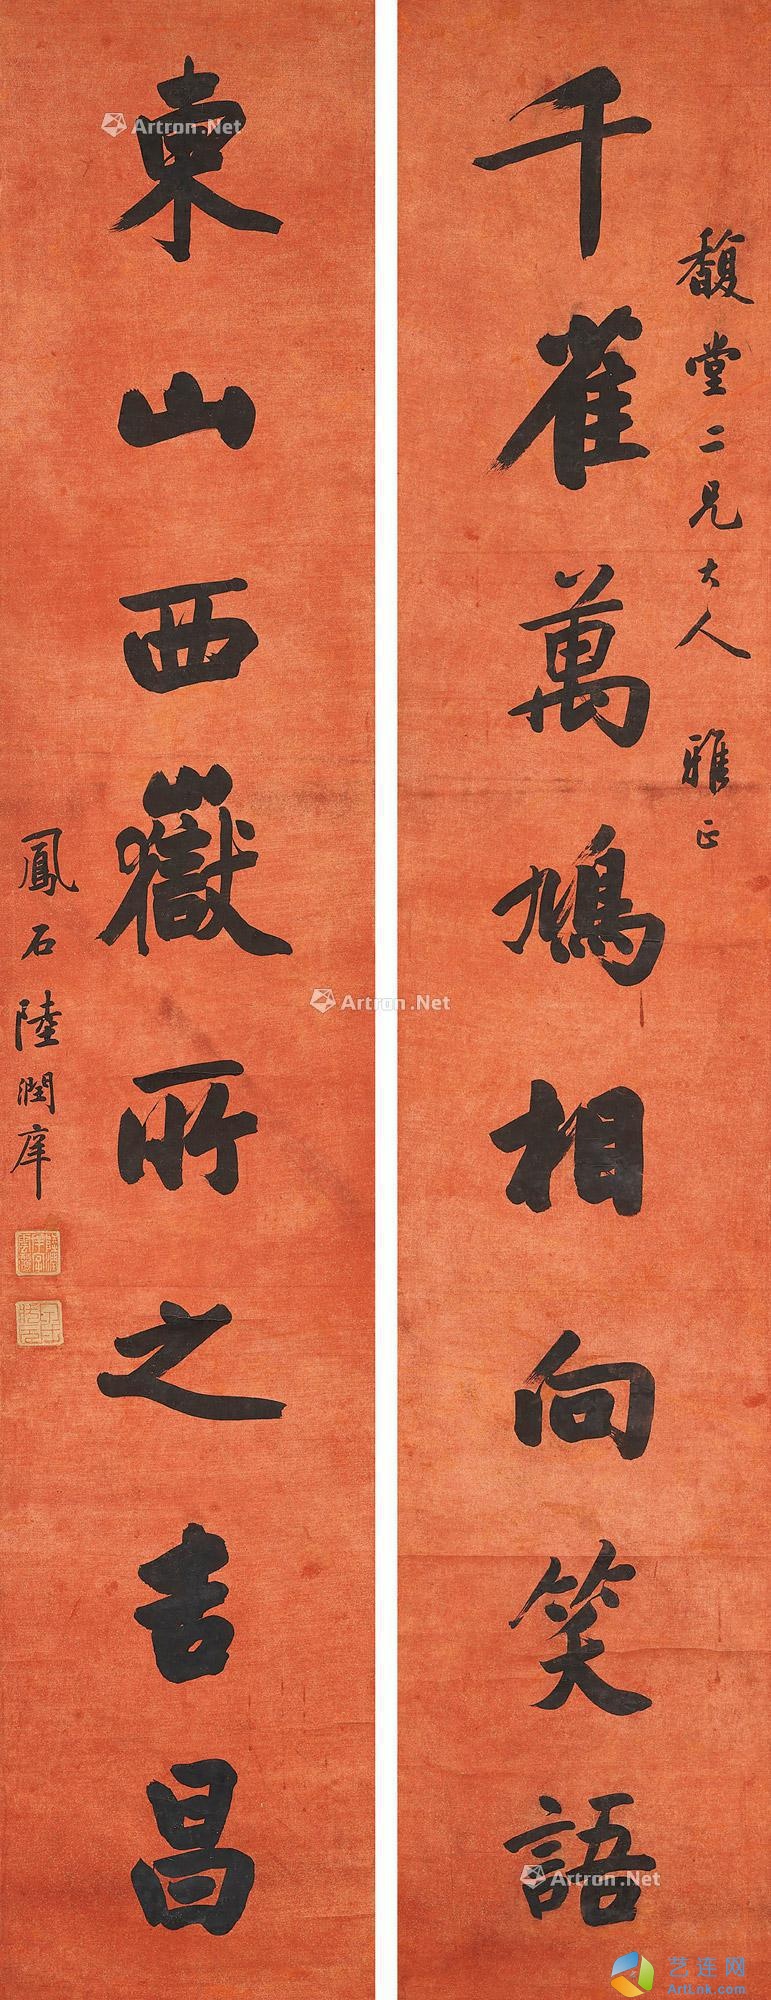 馥堂二兄大人 雅正
千雀萬鳩相向笑語
東山西嶽所之吉昌
鳳石陸潤庠
Artron.Net
Artron.Net
Artron.Net
艺连网
ArtLok.com